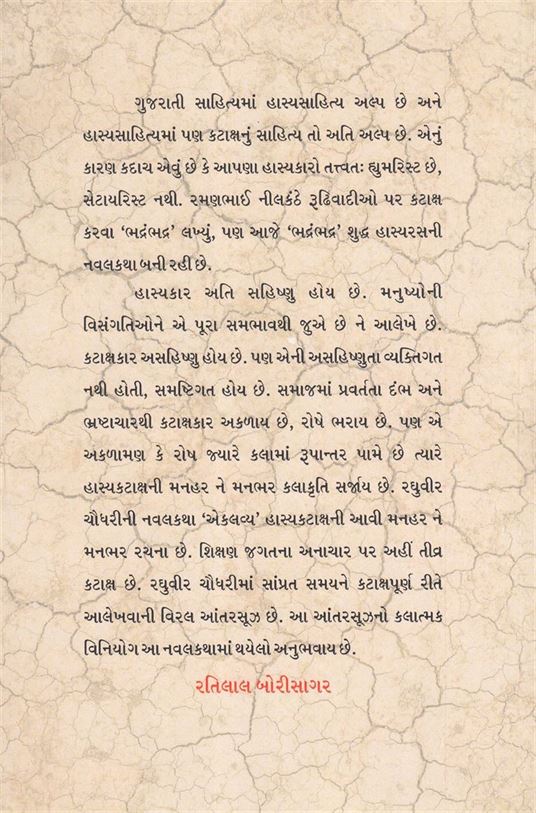 ગુજરાતી સાહિત્યમાં હાસ્યસાહિત્ય અલ્પ છે અને
હાસ્યસાહિત્યમાં પણ કટાક્ષનું સાહિત્ય તો અતિ અલ્પ છે. એનું
કારણ કદાચ એવું છે કે આપણા હાસ્યકારો તત્ત્વતઃ હ્યુમરિસ્ટ છે,
સેટાયરિસ્ટ નથી. રમણભાઈ નીલકંઠે રૂઢિવાદીઓ પર કટાક્ષ
કરવા ‘ભદ્રંભદ્ર’ લખ્યું, પણ આજે ‘ભદ્રંભદ્ર’ શુદ્ધ હાસ્યરસની
નવલકથા બની રહી છે.
હાસ્યકાર અતિ સહિષ્ણુ હોય છે. મનુષ્યોની
વિસંગતિઓને એ પૂરા સમભાવથી જુએ છે ને આલેખે છે.
કટાક્ષકાર અસહિષ્ણુ હોય છે. પણ એની અસહિષ્ણુતા વ્યક્તિગત
નથી હોતી, સમષ્ટિગત હોય છે. સમાજમાં પ્રવર્તતા દંભ અને
ભ્રષ્ટાચારથી કટાક્ષકાર અકળાય છે, રોષે ભરાય છે. પણ એ
અકળામણ કે રોષ જ્યારે કલામાં રૂપાન્તર પામે છે ત્યારે
હાસ્યકટાક્ષની મનહર ને મનભર કલાકૃતિ સર્જાય છે. રઘુવીર
ચૌધરીની નવલકથા ‘એકલવ્ય’ હાસ્યકટાક્ષની આવી મનહર ને
મનભર રચના છે. શિક્ષણ જગતના અનાચાર પર અહીં તીવ્ર
કટાક્ષ છે. રઘુવીર ચૌધરીમાં સાંપ્રત સમયને કટાક્ષપૂર્ણ રીતે
આલેખવાની વિરલ આંતરસૂઝ છે. આ આંતરસૂઝનો કલાત્મક
વિનિયોગ આ નવલકથામાં થયેલો અનુભવાય છે.
રતિલાલ બોરીસાગર